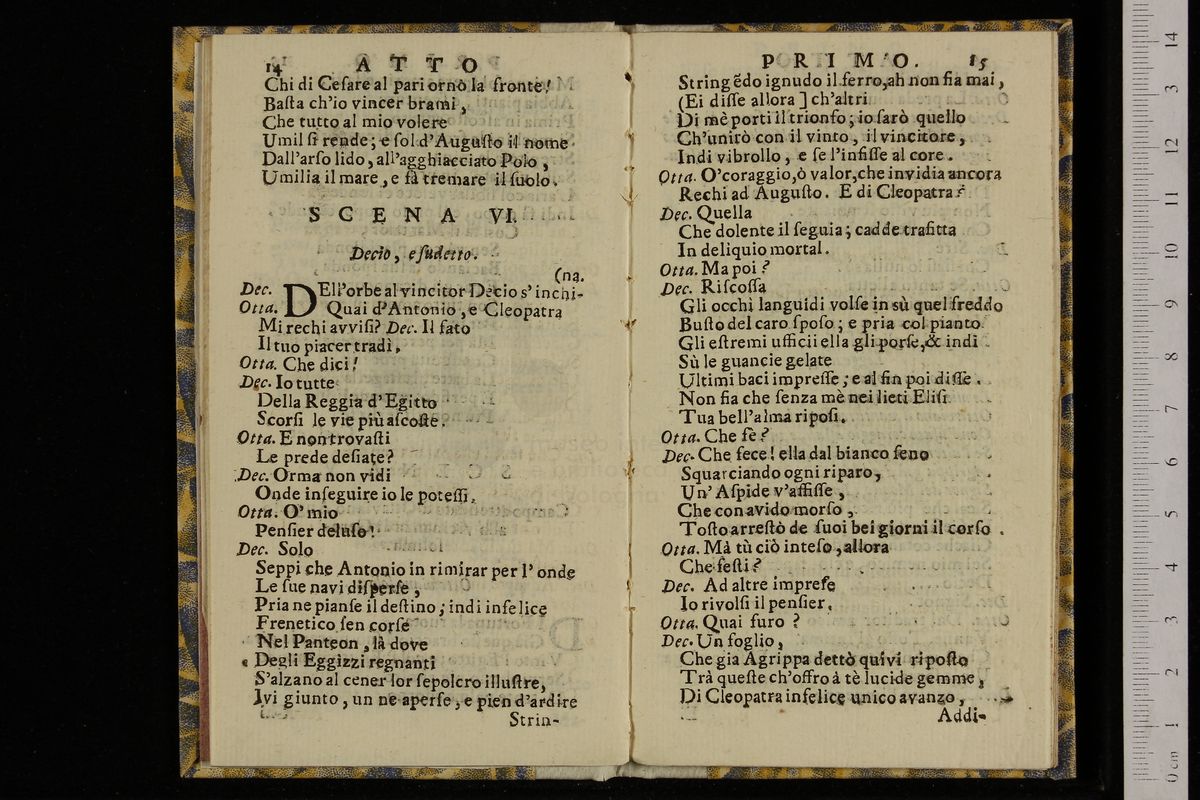 14 ATTO
Chi di Ceſare al pari ornò la fronte!
Baſta ch'io vincer brami,
Che tutto al mio volere
Umil ſi rende; e ſol d'Auguſto il nome
Dall'arſo lido, all'agghiacciato Polo,
Umilia il mare, e fà tremare il ſuolo.
SCENA VI.
Decio, e ſudetto.
(na.
Dec. DEll'orbe al vincitor Decio s'inchi-
Otta. Quai d'Antonio, e Cleopatra
Mi rechi avviſi? Dec. Il fato
Il tuo piacer tradì.
Otta. Che dici!
Dec. Io tutte
Della Reggia d'Egitto
Scorſi le vie più aſcoſte.
Otta. E non trovaſti
Le prede deſiate?
Dec. Orma non vidi
Onde inſeguire io le poteſſi.
Otta. O' mio
Penſier deluſo!
Dec. Solo
Seppi che Antonio in rimirar per l'onde
Le ſue navi diſperſe,
Pria ne pianſe il deſtino; indi infelice
Frenetico ſen corſe
Nel Panteon, là dove
Degli Eggizzi regnanti
S'alzano al cener lor ſepolcro illuſtre,
Ivi giunto, un ne aperſe, e pien d'ardire
Strin-
PRIMO. 15
Stringẽdo ignudo il ferro, ah non fia mai,
(Ei diſſe allora ] ch'altri
Di mè porti il trionfo; io ſarò quello
Ch'unirò con il vinto, il vincitore,
Indi vibrollo, e ſe l'infiſſe al core.
Otta. O' coraggio, ò valor, che invidia ancora
Rechi ad Auguſto. E di Cleopatra?
Dec. Quella
Che dolente il ſeguia; cadde trafitta
In deliquio mortal.
Otta. Ma poi?
Dec. Riſcoſſa
Gli occhi languidi volſe in sù quel freddo
Buſto del caro ſpoſo; e pria col pianto
Gli eſtremi ufficii ella gli porſe, & indi
Sù le guancie gelate
Ultimi baci impreſſe; e al fin poi diſſe.
Non fia che ſenza mè nei lieti Eliſi
Tua bell'alma ripoſi.
Otta. Che fè?
Dec. Che fece! ella dal bianco ſeno
Squarciando ogni riparo,
Un' Aſpide v'affiſſe,
Che con avido morſo,
Toſto arreſtò de ſuoi bei giorni il corſo.
Otta. Mà tù ciò inteſo, allora
Che feſti?
Dec. Ad altre impreſe
Io rivolſi il penſier.
Otta. Quai furo?
Dec. Un foglio,
Che gia Agrippa dettò quivi ripoſto
Trà queſte ch'offro à tè lucide gemme,
Di Cleopatra infelice unico avanzo,
Addi-
14
13
12
11
10
9
8
7
6
5
4
3
2
1
0 cm